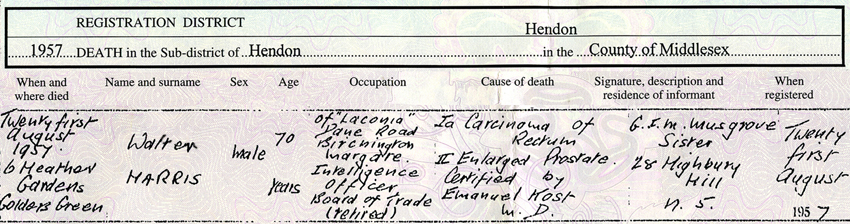 REGISTRATION DISTRICT Hendon
1957 DEATH in the Sub-district of Hendon in the County of Middlesex
When and where died
Name and surname
Sex
Age
Occupation
Cause of death
Signature, description and residence of informant
When registered
Twenty first
August
1957
6 Heather
Gardens
Golders Green
Walter
HARRIS
male
70
years
of "Laconia"
Dane Road
Birchington
Margate.
Intelligence
Officer
Board of Trade
(retired)
Ia Carcinoma of
Rectum
II Enlarged Prostate.
Certified by
Emanuel Kost
M.D.
G.I.M. Musgrove
Sister
28 Highbury
Hill
N.5.
Twenty
first
August
1957